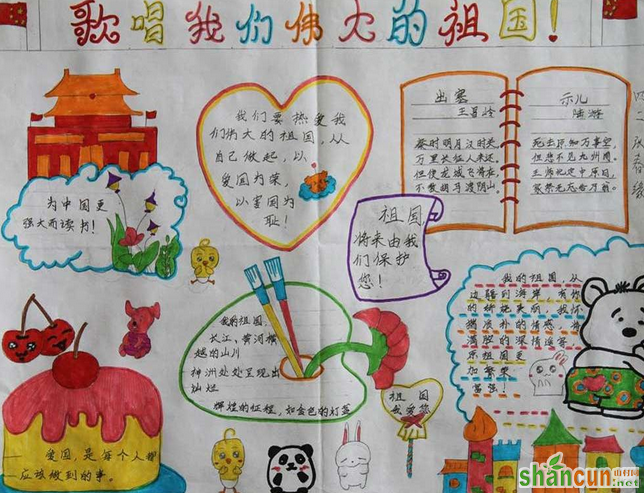 歌唱我们伟大的祖国!
我们要热爱我
们伟大的祖国,从
自己做起,以
爱国为荣,
以害国为
耻!
出塞
王昌龄
秦时明月汉时关
万里长征人未还
但使龙城飞将在
不教胡马渡阴山
示儿
陆游
死去原知万事空,
但悲不见九州同,
王师北定中原日,
家祭无忘告乃翁。
为中国更
强大而读书!
祖国
将来由我
们保护
您!
我的祖国,
长江,黄河横
越的山川
神洲处处呈现出
灿烂
辉煌的征程,如金色的灯蓝
我的祖国,从
边疆到海岸
祖国
我爱您
爱国,是每个人都
应该做到的事。
shancun
.net